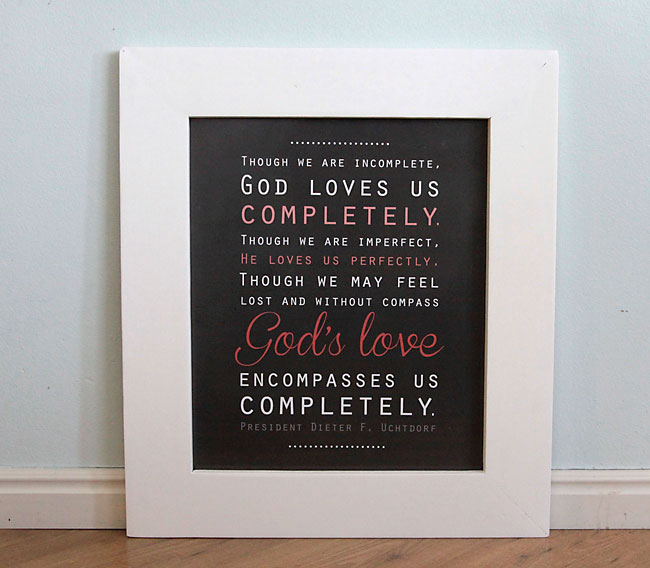 Though we are incomplete,
God loves us
completely.
Though we are imperfect,
He loves us perfectly.
Though we may feel
lost and without compass
God's love
encompasses us
completely.
President Dieter F. Uchtdorf